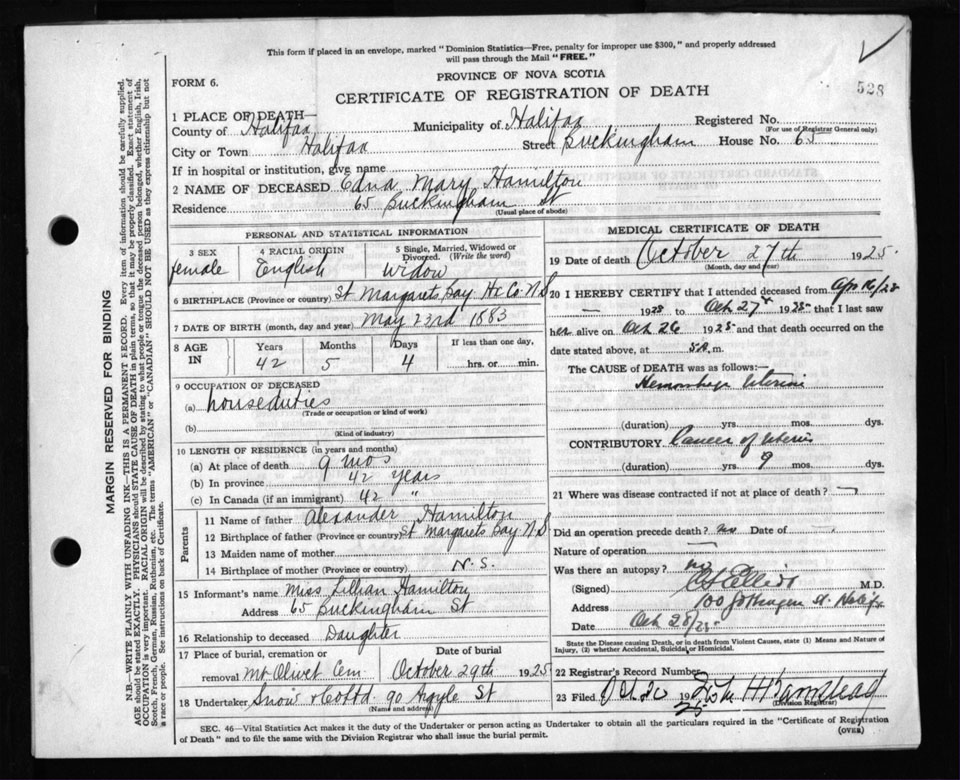 This form if placed in an envelope, marked "Dominion Statistics—Free, penalty for improper use $300," and properly addressed
will pass through the Mail "FREE."
528
FORM 6.
PROVINCE OF NOVA SCOTIA
CERTIFICATE OF REGISTRATION OF DEATH
1 PLACE OF DEATH—
County of Halifax Municipality of Halifax Registered No.
(For use of Registrar General only)
City or Town Halifax Street Buckingham House No. 65
If in hospital or institution, give name
2 NAME OF DECEASED Edna Mary Hamilton
Residence 65 Buckingham St
(Usual place of abode)
PERSONAL AND STATISTICAL INFORMATION
3 SEX 4 RACIAL ORIGIN 5 Single, Married, Widowed or
Divorced. (Write the word)
female English widow
6 BIRTHPLACE (Province or country) St Margarets Bay Hx Co N.S
7 DATE OF BIRTH (month, day and year) May 23rd 1883
8 AGE IN Years Months Days If less than one day,
42 5 4 hrs. or min.
9 OCCUPATION OF DECEASED
(a) houseduties
(Trade or occupation or kind of work)
(b)
(Kind of industry)
10 LENGTH OF RESIDENCE (in years and months)
(a) At place of death 9 mos
(b) In province 42 years
(c) In Canada (if an immigrant) 42 "
Parents
11 Name of father Alexander Hamilton
12 Birthplace of father (Province or country) St Margarets Bay N.S
13 Maiden name of mother
14 Birthplace of mother (Province or country) N.S.
15 Informant's name Miss Lillian Hamilton
Address 65 Buckingham St
16 Relationship to deceased Daughter
17 Place of burial, cremation or Date of burial
removal Mt Olivet Cem October 29th 1925
18 Undertaker Snow & Co Ltd. 90 Argyle St
(Name and address)
MEDICAL CERTIFICATE OF DEATH
19 Date of death October 27th 1925.
(Month, day and year)
20 I HEREBY CERTIFY that I attended deceased from Apr 16/25
— 1925 to Oct 27 1925 that I last saw
her alive on Oct 26 1925 and that death occurred on the
date stated above, at m.
The CAUSE of DEATH was as follows:—
Hemorrhage Uterine
(duration) yrs. mos. dys.
CONTRIBUTORY Cancer of Uterus
(duration) yrs. 9 mos. dys.
21 Where was disease contracted if not at place of death? —
Did an operation precede death? no Date of
Nature of operation —
Was there an autopsy? no
(Signed) M.D.
Address 100 St. Halifax
Date Oct 28/25
State the Disease causing Death, or in death from Violent Causes, state (1) Means and Nature of
Injury, (2) whether Accidental, Suicidal or Homicidal.
22 Registrar's Record Number
23 Filed 192
25
(Division Registrar)
SEC. 46—Vital Statistics Act makes it the duty of the Undertaker or person acting as Undertaker to obtain all the particulars required in the "Certificate of Registration
of Death" and to file the same with the Division Registrar who shall issue the burial permit.
(OVER)
MARGIN RESERVED FOR BINDING
N.B.—WRITE PLAINLY WITH UNFADING INK—THIS IS A PERMANENT RECORD. Every item of information should be carefully supplied.
AGE should be stated EXACTLY. PHYSICIANS should STATE CAUSE OF DEATH in plain terms, so that it may be properly classified. Exact statement of
OCCUPATION is very important. RACIAL ORIGIN will be described by stating to what people or tongue the deceased person belonged, whether English, Irish,
Scotch, French, German, Russian, Ruthenian, etc. The terms "AMERICAN" or "CANADIAN" SHOULD NOT BE USED as they express citizenship but not
a race or people. See instructions on back of Certificate.